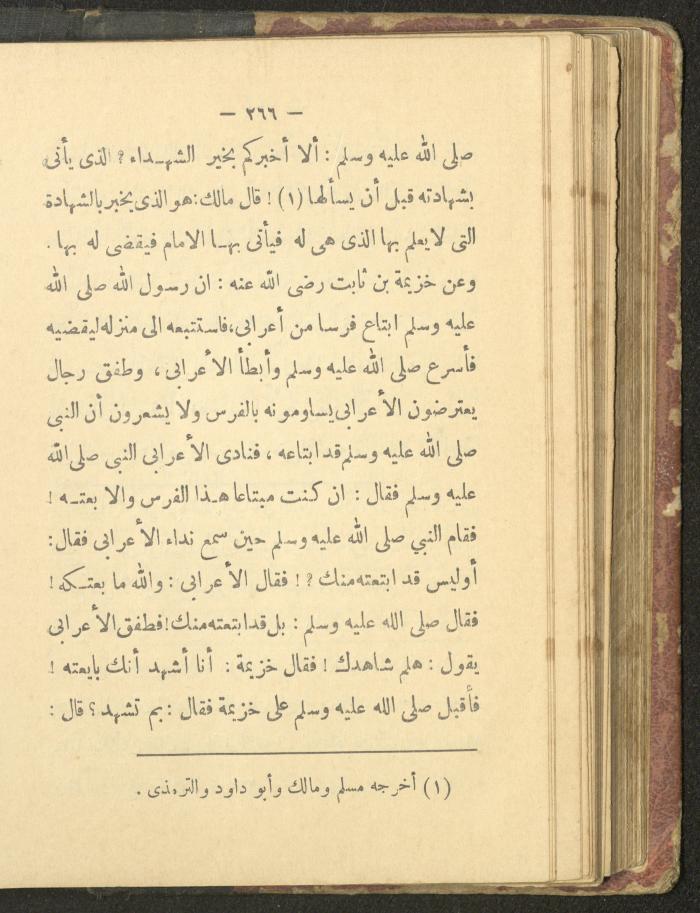 — ٢٦٦ —
صلى الله عليه وسلم : ألا أخبركم بخير الشهداء ؟ الذى يأتى
بشهادته قبل أن يسألها (١) ! قال مالك : هو الذى يخبر بالشهادة
التى لا يعلم بها الذى هى له فيأتى بها الامام فيقضى له بها .
وعن خزيمة بن ثابت رضى الله عنه : ان رسول الله صلى الله
عليه وسلم ابتاع فرسا من أعرابى ، فاستتبعه الى منزله ليقضيه
فأسرع صلى الله عليه وسلم وأبطأ الأعرابى ، وطفق رجال
يعترضون الأعرابى يساومونه بالفرس ولا يشعرون أن النبى
صلى الله عليه وسلم قد ابتاعه ، فنادى الأعرابى النبى صلى الله
عليه وسلم فقال : ان كنت مبتاعا هذا الفرس والا بعته !
فقام النبي صلى الله عليه وسلم حين سمع نداء الأعرابى فقال :
أوليس قد ابتعته منك ؟ ! فقال الأعرابى : والله ما بعتكه !
فقال صلى الله عليه وسلم : بل قد ابتعته منك ! فطفق الأعرابى
يقول : هلم شاهدك ! فقال خزيمة : أنا أشهد أنك بايعته !
فأقبل صلى الله عليه وسلم على خزيمة فقال : بم تشهد ؟ قال :
(١) أخرجه مسلم ومالك وأبو داود والترمذى .